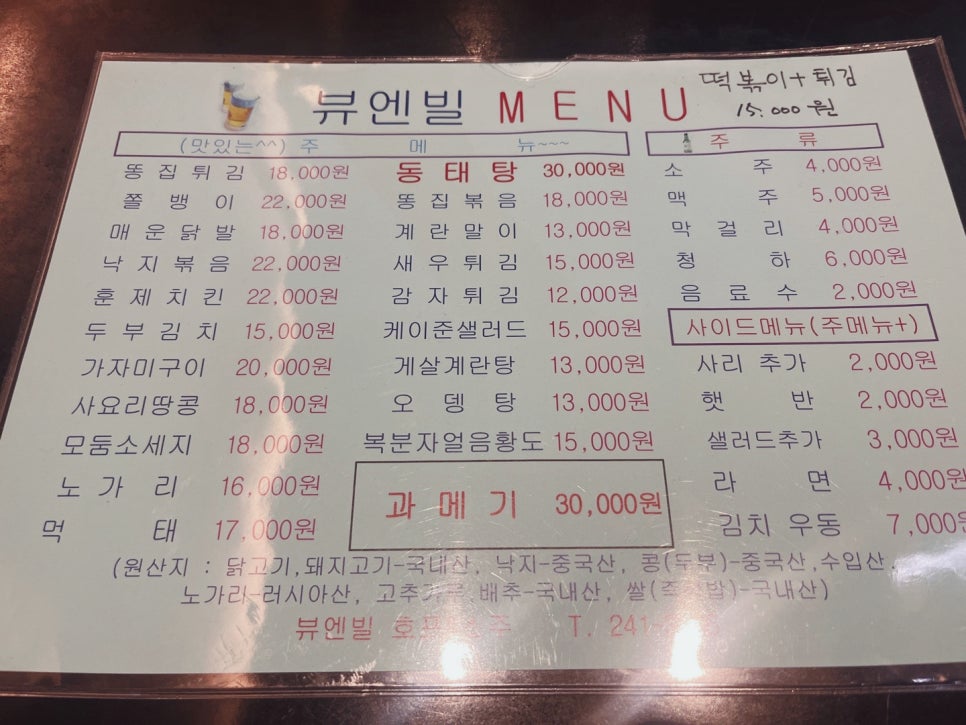 떡볶이+튀김
15.000원
뷰엔빌 MENU
(맛있는^^) 주 메 뉴~~~
똥집튀김 18,000원
쫄뱅이 22,000원
매운닭발 18,000원
낙지볶음 22,000원
훈제치킨 22,000원
두부김치 15,000원
가자미구이 20,000원
사요리땅콩 18,000원
모둠소세지 18,000원
노가리 16,000원
먹태 17,000원
동태탕 30,000원
똥집볶음 18,000원
계란말이 13,000원
새우튀김 15,000원
감자튀김 12,000원
케이준샐러드 15,000원
게살계란탕 13,000원
오뎅탕 13,000원
복분자얼음황도 15,000원
과메기 30,000원
주 류
소주 4,000원
맥주 5,000원
막걸리 4,000원
청하 6,000원
음료수 2,000원
사이드메뉴(주메뉴+)
사리 추가 2,000원
햇반 2,000원
샐러드추가 3,000원
라면 4,000원
김치 우동 7,000원
(원산지 : 닭고기,돼지고기-국내산, 낙지-중국산, 콩(두부)-중국산,수입산.
노가리-러시아산, 배추-국내산, 쌀 -국내산)
뷰엔빌 T. 241